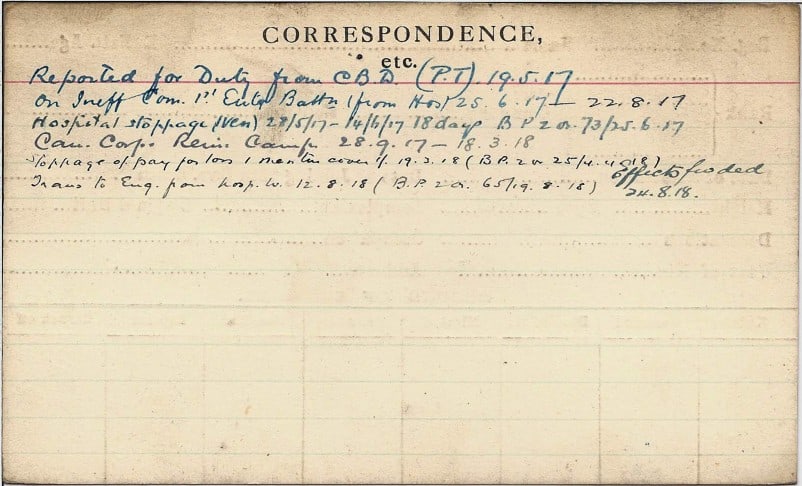 CORRESPONDENCE,
etc.
Reported for Duty from CBD. (P.T) 19.5.17
On Ineff Com. 1st Entr Battn (from Hos) 25.6.17 — 22.8.17
Hospital stoppage (Ven) 28/5/17 - 14/6/17 18 days B P 2 or 73/25.6.17
Can. Corps Rein: Camp. 28.9.17 — 18.3.18
Stoppage of pay for loss 1 mess tin cover 19.3.18 (B.P. 2 or 25/4.4.18)
Trans to Eng. from hosp. W. 12.8.18 ( B.P. 2 or. 65/19.8.18)
Effects
24.8.18.